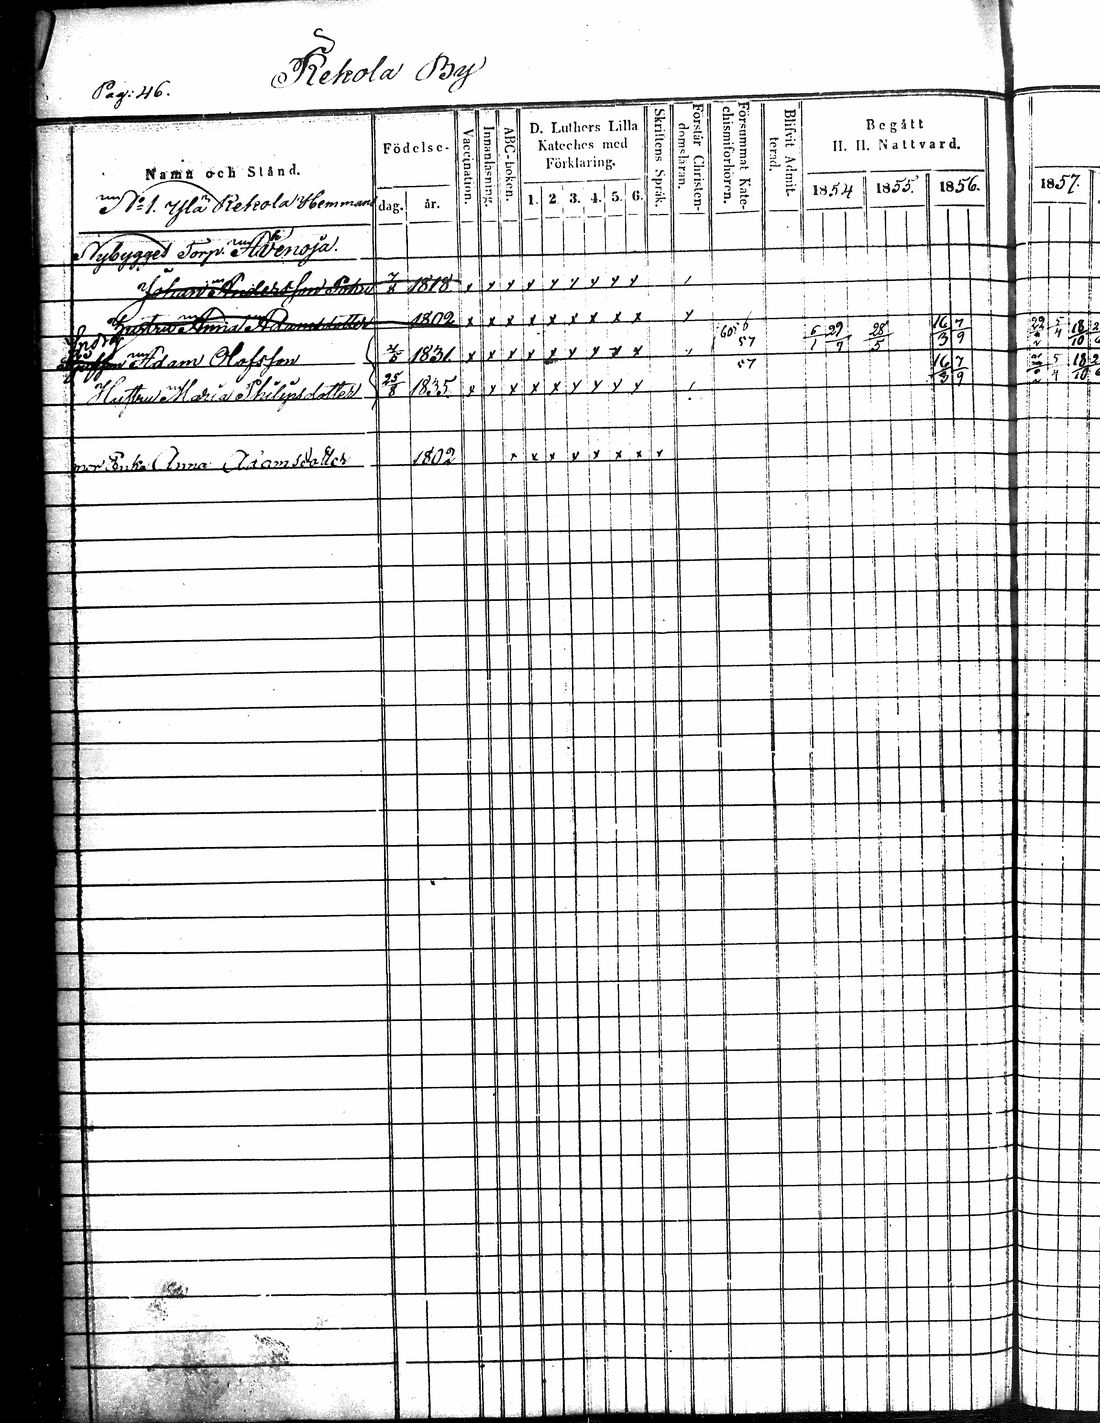 Rekola By
Pag: 46.
Namn och Stånd.
Födelse-
dag. år.
Vaccination.
Innanläsning.
ABC-boken.
D. Luthers Lilla
Kateches med
Förklaring.
1. 2. 3. 4. 5. 6.
Skriftens Språk.
Förstår Christen-
domsläran.
Försummat Kate-
chismiförhören.
Blifvit Admit-
terad.
Begått
H. H. Nattvard.
1854 1855. 1856. 1857.
No 1. Ylä Rekola Hemman
Nybygged Torp. Ahvenoja.
Johan Andersson 1818 x x x x x x x x x
Hustru Anna Adamsdotter 1802 x x x x x x x x x
Adam Olofsson 1831 x x x x x x x x x 57 28/5 16/3 7/9
Hustru Maria Philipsdotter 25/8 1835. x x x x x x x x x 57 16/3 7/9
Enka Anna Adamsdotter 1802 x x x x x x x x